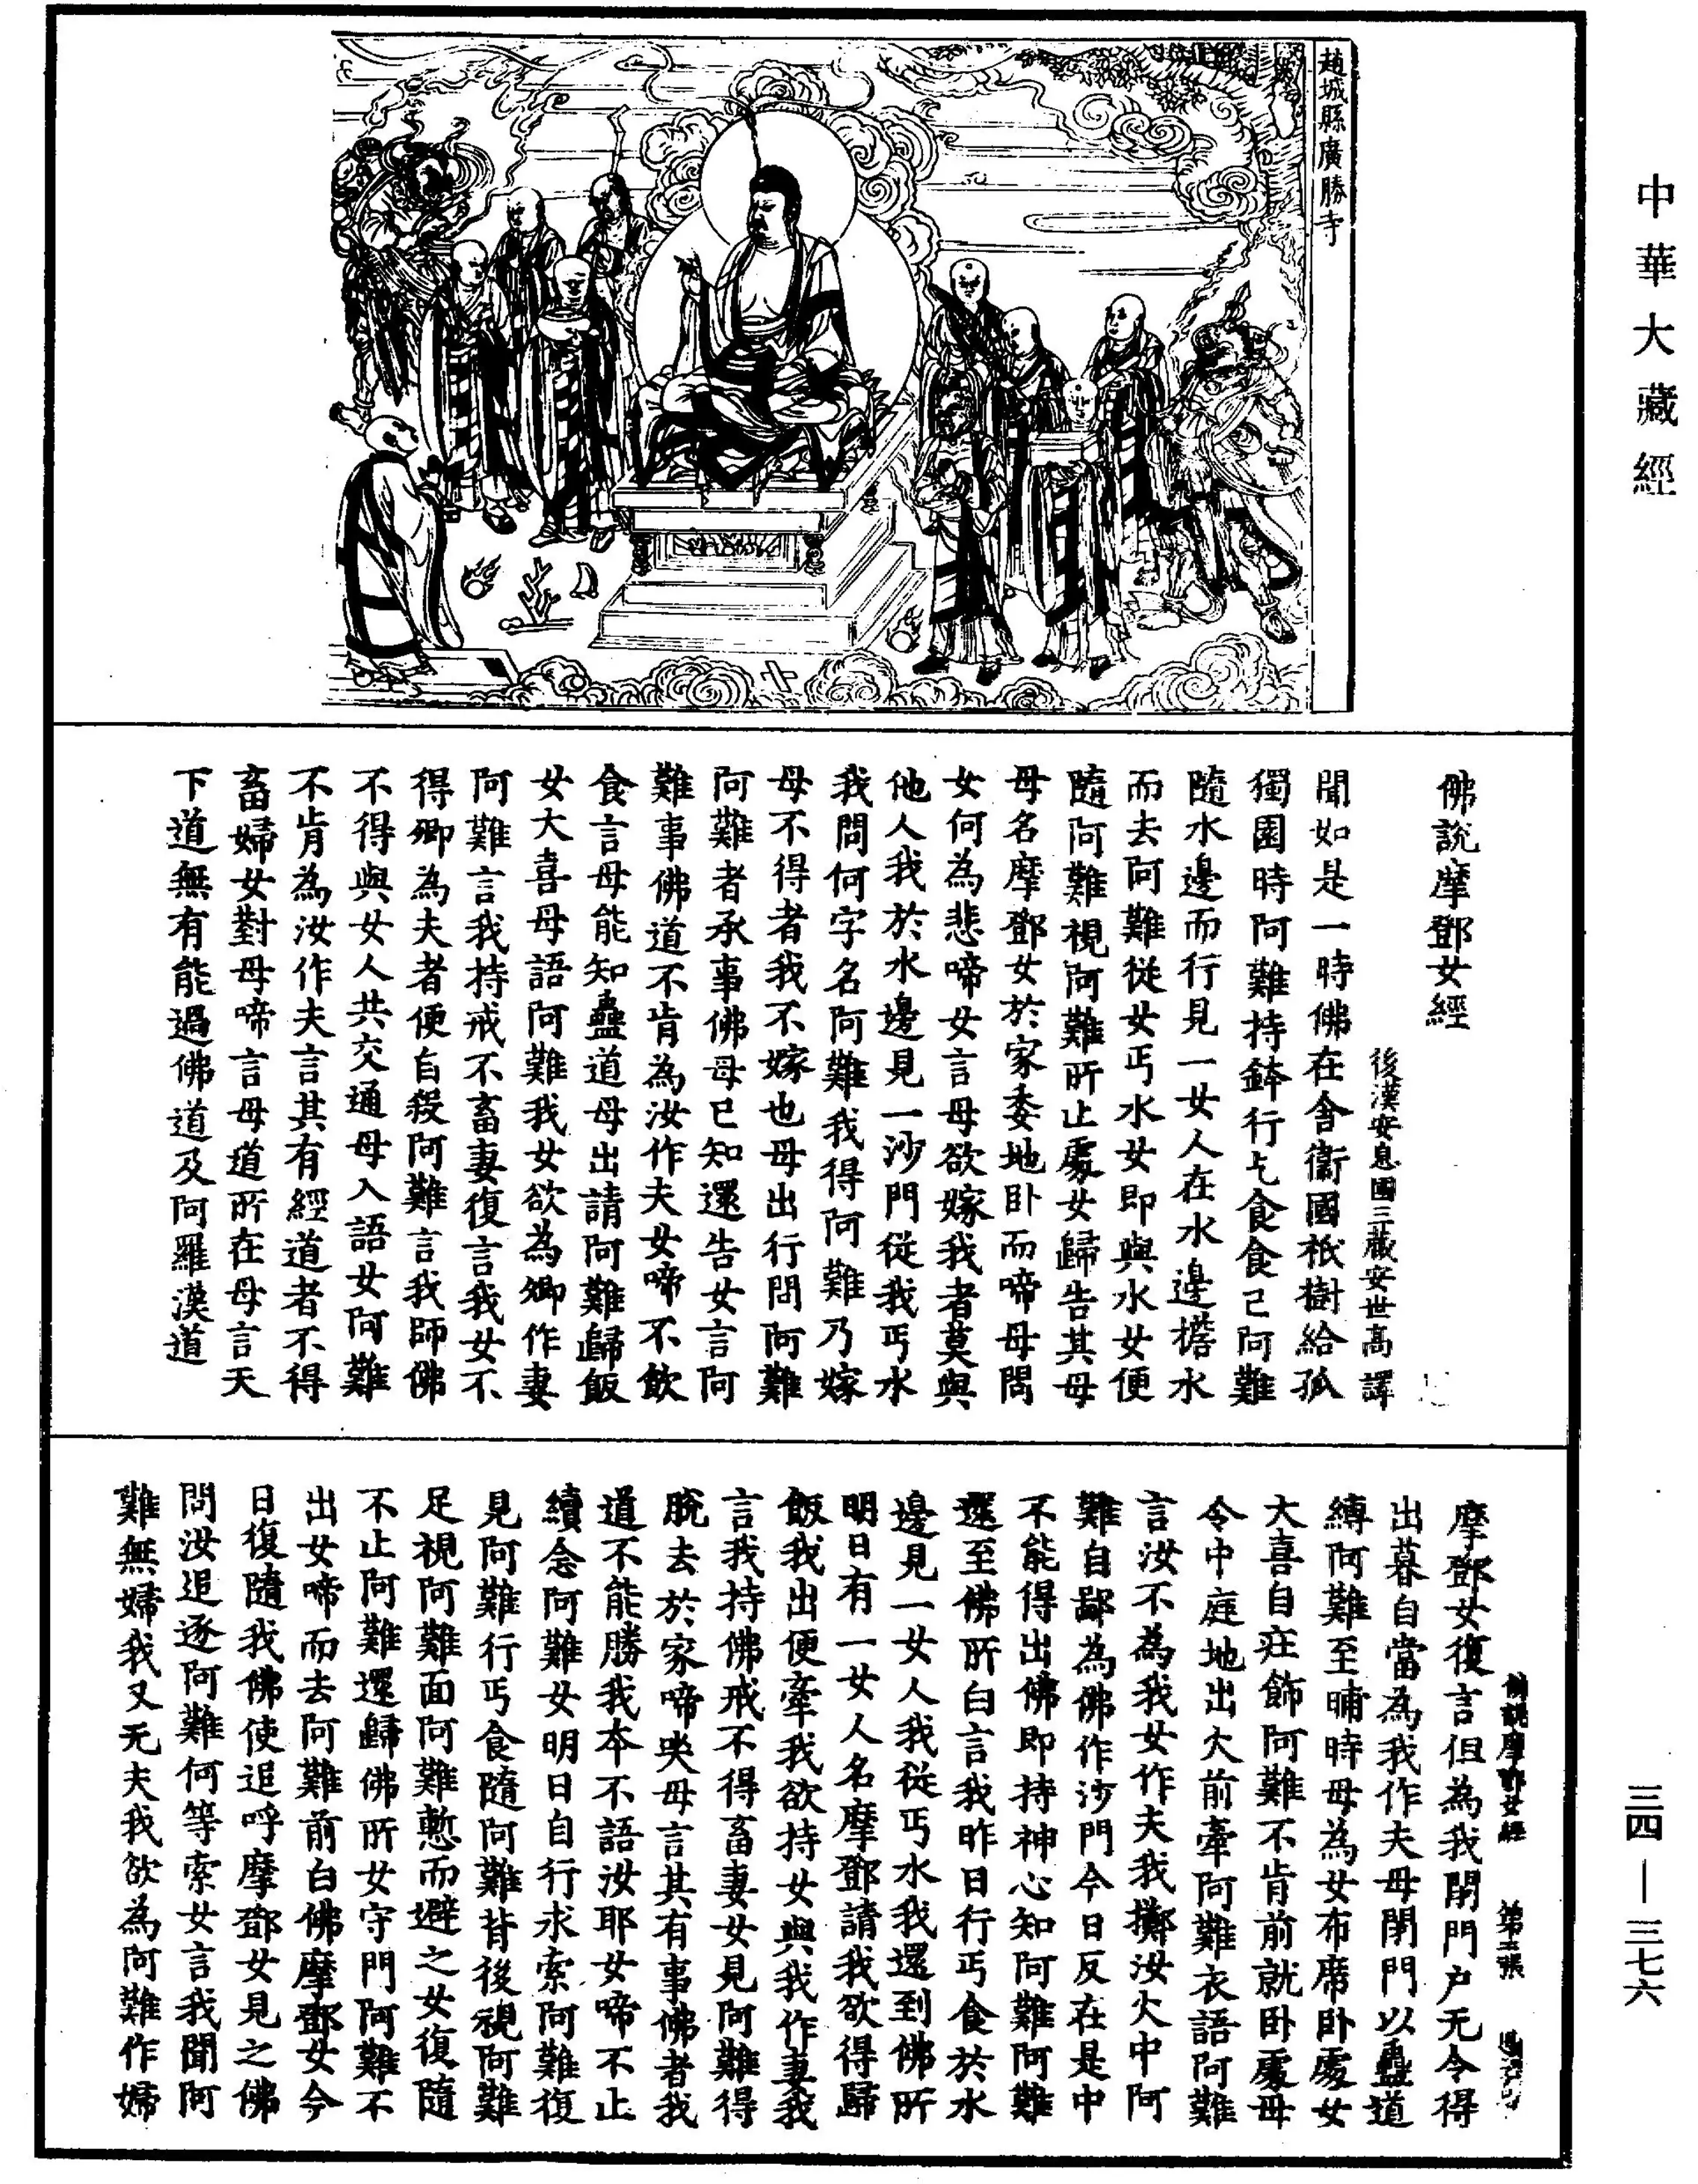 中華大藏經
趙城縣廣勝寺
佛說摩鄧女經
後漢安息國三藏安世高譯
聞如是一時佛在舍衛國祇樹給孤
獨園時阿難持鉢行乞食食已阿難
隨水邊而行見一女人在水邊擔水
而去阿難從女丐水女即與水女便
隨阿難視阿難所止處女歸告其母
母名摩鄧女於家委地卧而啼母問
女何為悲啼女言母欲嫁我者莫與
他人我於水邊見一沙門從我丐水
我問何字名阿難我得阿難乃嫁
母不得者我不嫁也母出行問阿難
阿難者承事佛母已知還告女言阿
難事佛道不肯為汝作夫女啼不飲
食言母能知蠱道母出請阿難歸飯
女大喜母語阿難我女欲為卿作妻
阿難言我持戒不畜妻復言我女不
得卿為夫者便自殺阿難言我師佛
不得與女人共交通母入語女阿難
不肯為汝作夫言其有經道者不得
畜婦女對母啼言母道所在母言天
下道無有能過佛道及阿羅漢道
佛說摩鄧女經 第二張
摩鄧女復言但為我閉門户无令得
出暮自當為我作夫母閉門以蠱道
縛阿難至晡時母為女布席卧處女
大喜自莊飾阿難不肯前就卧處母
令中庭地出火前牽阿難衣語阿難
言汝不為我女作夫我擲汝火中阿
難自鄙為佛作沙門今日反在是中
不能得出佛即持神心知阿難阿難
還至佛所白言我昨日行丐食於水
邊見一女人我從丐水我還到佛所
明日有一女人名摩鄧請我欲得歸
飯我出便牽我欲持女與我作妻我
言我持佛戒不得畜妻女見阿難得
脫去於家啼哭母言其有事佛者我
道不能勝我本不語汝耶女啼不止
續念阿難女明日自行求索阿難復
見阿難行丐食隨阿難背後視阿難
足視阿難面阿難慙而避之女復隨
不止阿難還歸佛所女守門阿難不
出女啼而去阿難前白佛摩鄧女今
日復隨我佛使追呼摩鄧女見之佛
問汝追逐阿難何等索女言我聞阿
難無婦我又无夫我欲為阿難作婦
三四—三七六